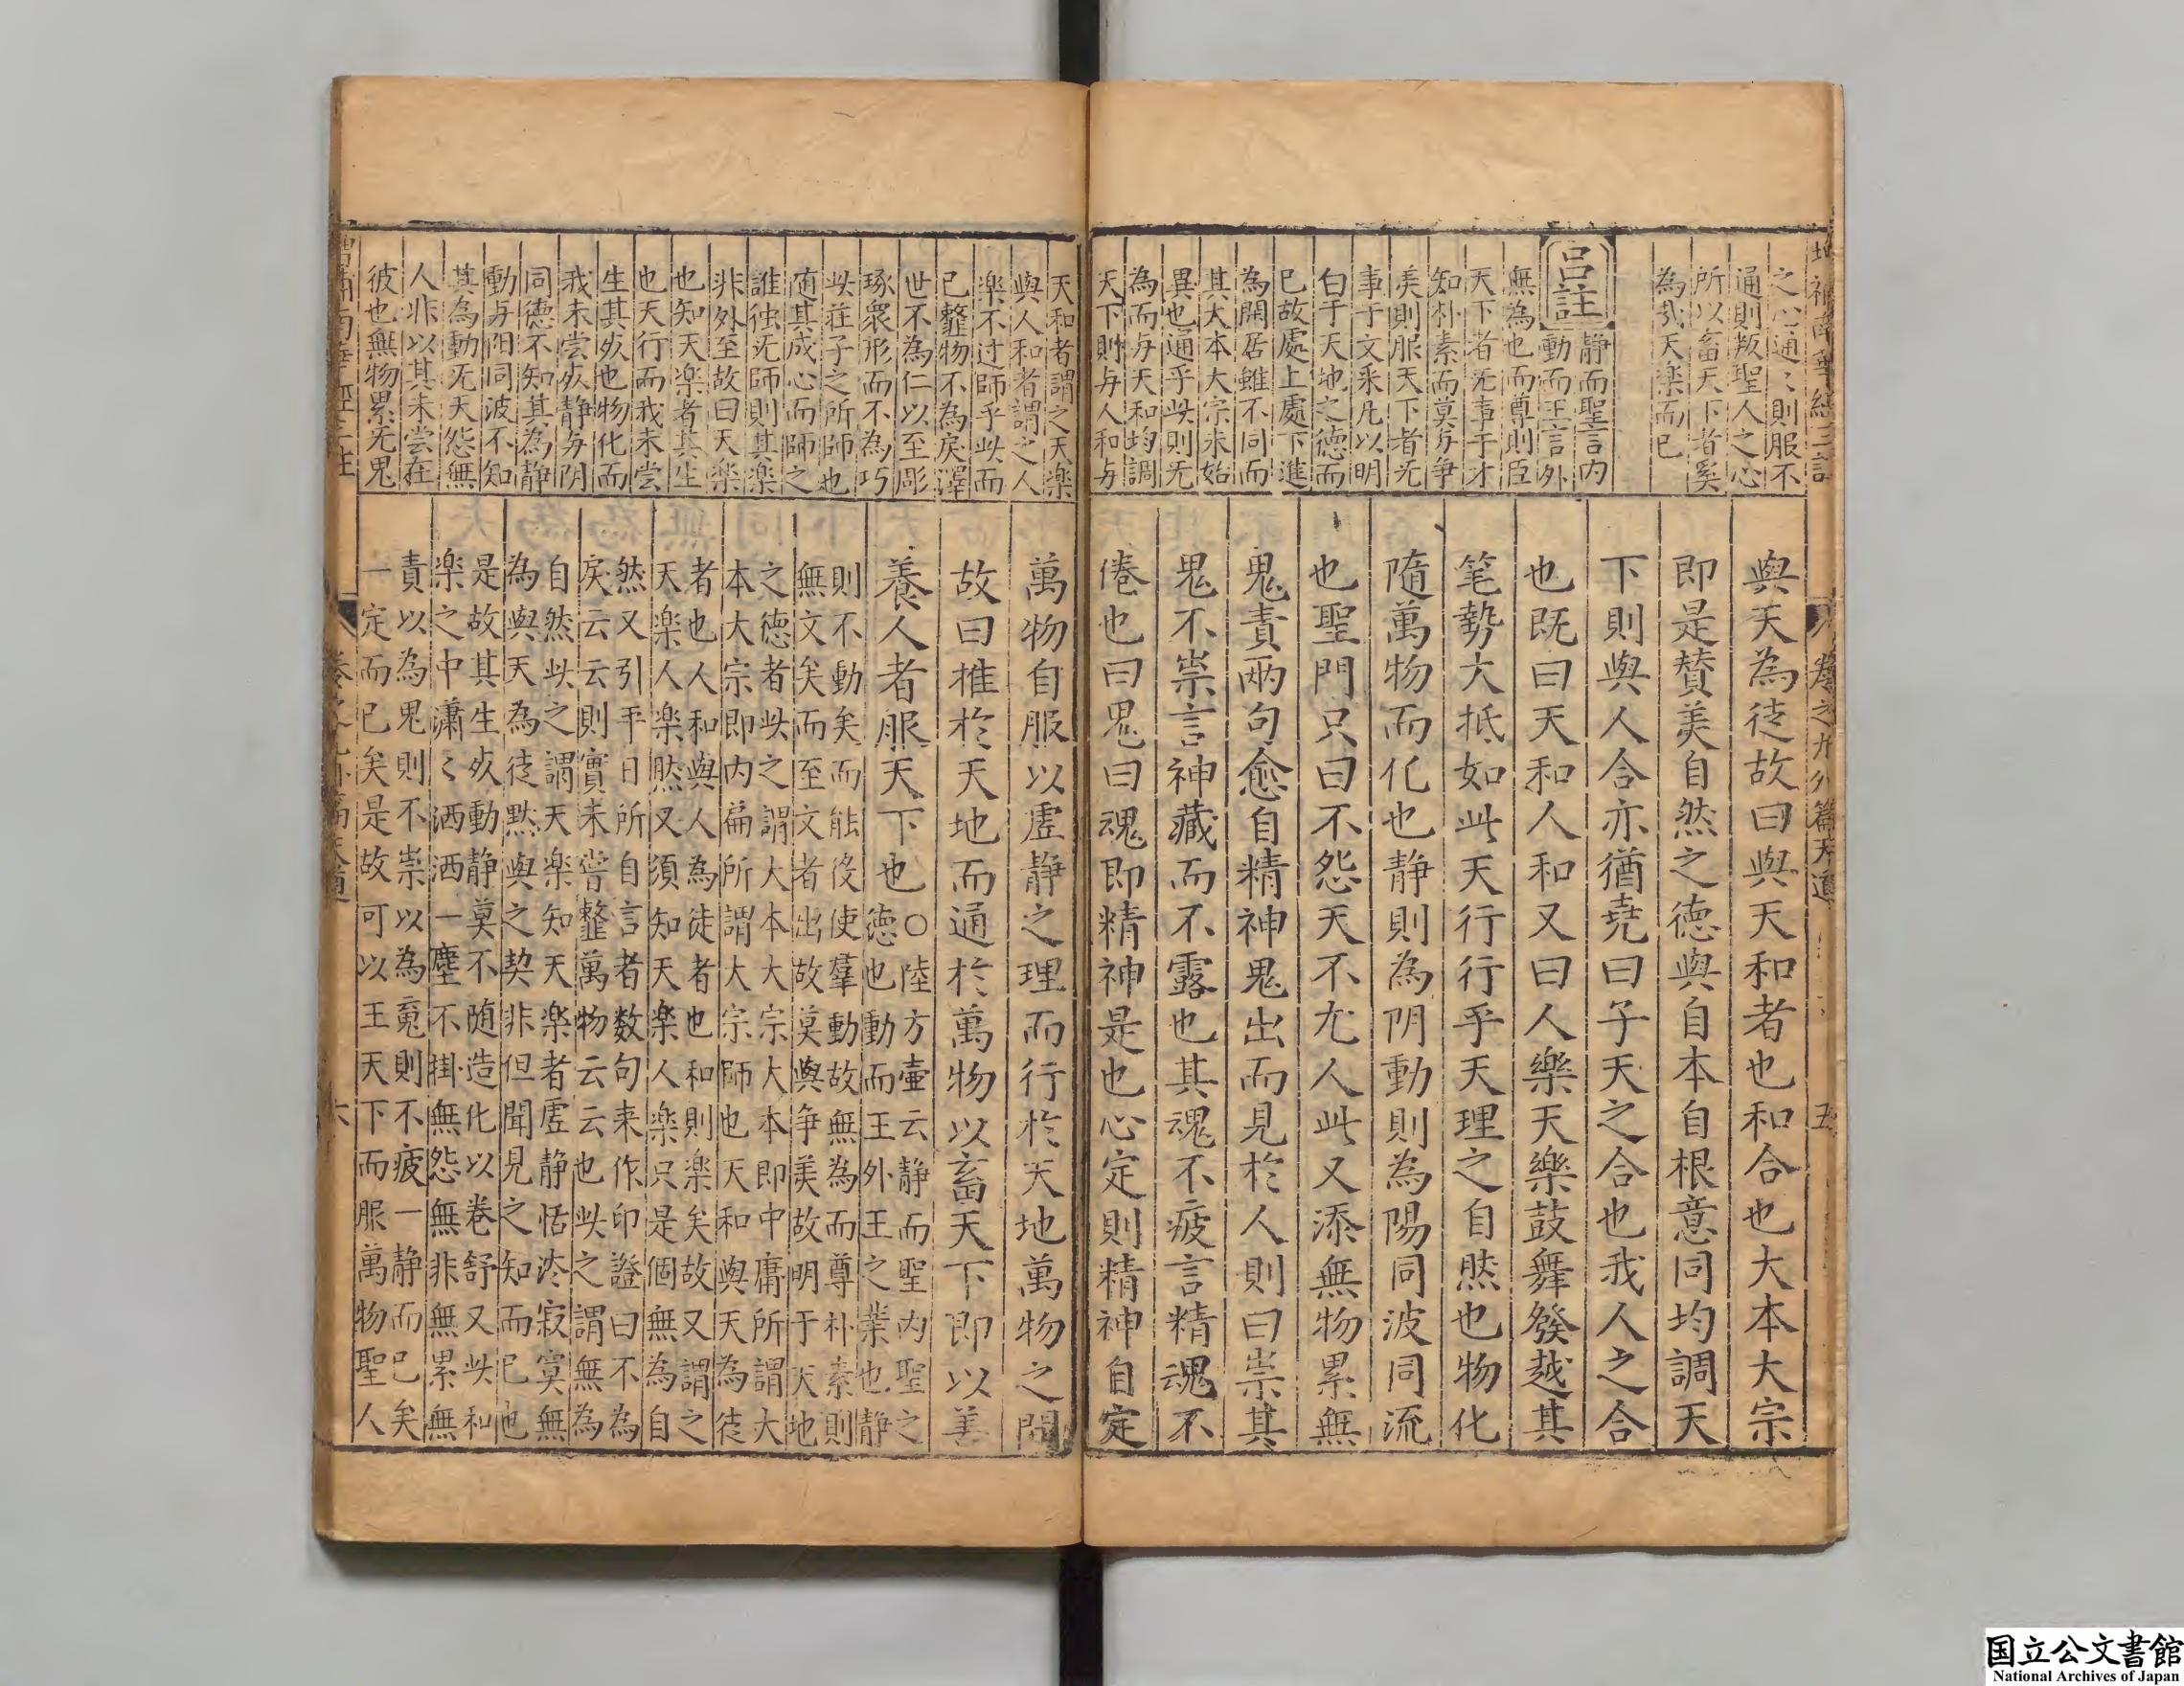 之心通〻則服不
通則叛聖人之心
所以畜天下者奚
為㢤天楽而已
呂註
静而聖言内
動而王言外
無為也而尊則臣
天下者无事于才
知朴素而莫与争
美則服天下者无
事于文采凡以明
白于天地之德而
已故處上處下進
為閒居雖不同而
其大本大宗未始
異也通乎此則无
為而与天和均調
天下則与人和与
與天為徒故曰與天和者也和合也大本大宗
即是賛美自然之德與自本自根意同均調天
下則與人合亦猶尭曰子天之合也我人之合
也既曰天和人和又曰人樂天樂鼓舞發越其
笔勢大抵如此天行行乎天理之自然也物化
隨萬物而化也静則為阴動則為陽同波同流
也聖門只曰不怨天不尤人此又添無物累無
鬼責兩句愈自精神鬼出而見於人則曰祟其
鬼不祟言神藏而不露也其魂不疲言精魂不
倦也曰鬼曰魂即精神是也心定則精神自定
天和者謂之天楽
與人和者謂之人
楽不过師乎此而
已䪠物不為戾澤
世不為仁以至彫
琢衆形而不為巧
此莊子之所師也
随其成心而師之
誰独无師則其楽
非外至故曰天楽
也知天楽者其生
也天行而我未尝
生其死也物化而
我未尝死静与阴
同德不知其為静
動与阳同波不知
其為動无天怨無
人非以其未尝在
彼也無物累无鬼
萬物自服以虚静之理而行於天地萬物之間
故曰推於天地而通於萬物以畜天下即以善
養人者服天下也○陸方壺云静而聖内聖之
德也動而王外王之業也静
則不動矣而能役使羣動故無為而尊朴素則
無文矣而至文者出故莫與争美故明于天地
之德者此之謂大本大宗大本即中庸所謂大
本大宗即内扁所謂大宗師也天和與天為徒
者也人和與人為徒者也和則楽矣故又謂之
天楽人楽然又須知天楽人楽只是個無為自
然又引平日所自言者数句来作印證曰不為
戾云云則實未嘗䪠萬物云云也此之謂無為
自然此之謂天楽知天楽者虚静恬淡寂寞無
為與天為徒黙與之契非但聞見之知而已也
是故其生死動静莫不随造化以卷舒又此和
楽之中瀟〻洒洒一塵不掛無怨無非無累無
責以為鬼則不祟以為䰟則不疲一静而已矣
一定而已矣是故可以王天下而服萬物聖人
国立公文書館
National Archives of Japan